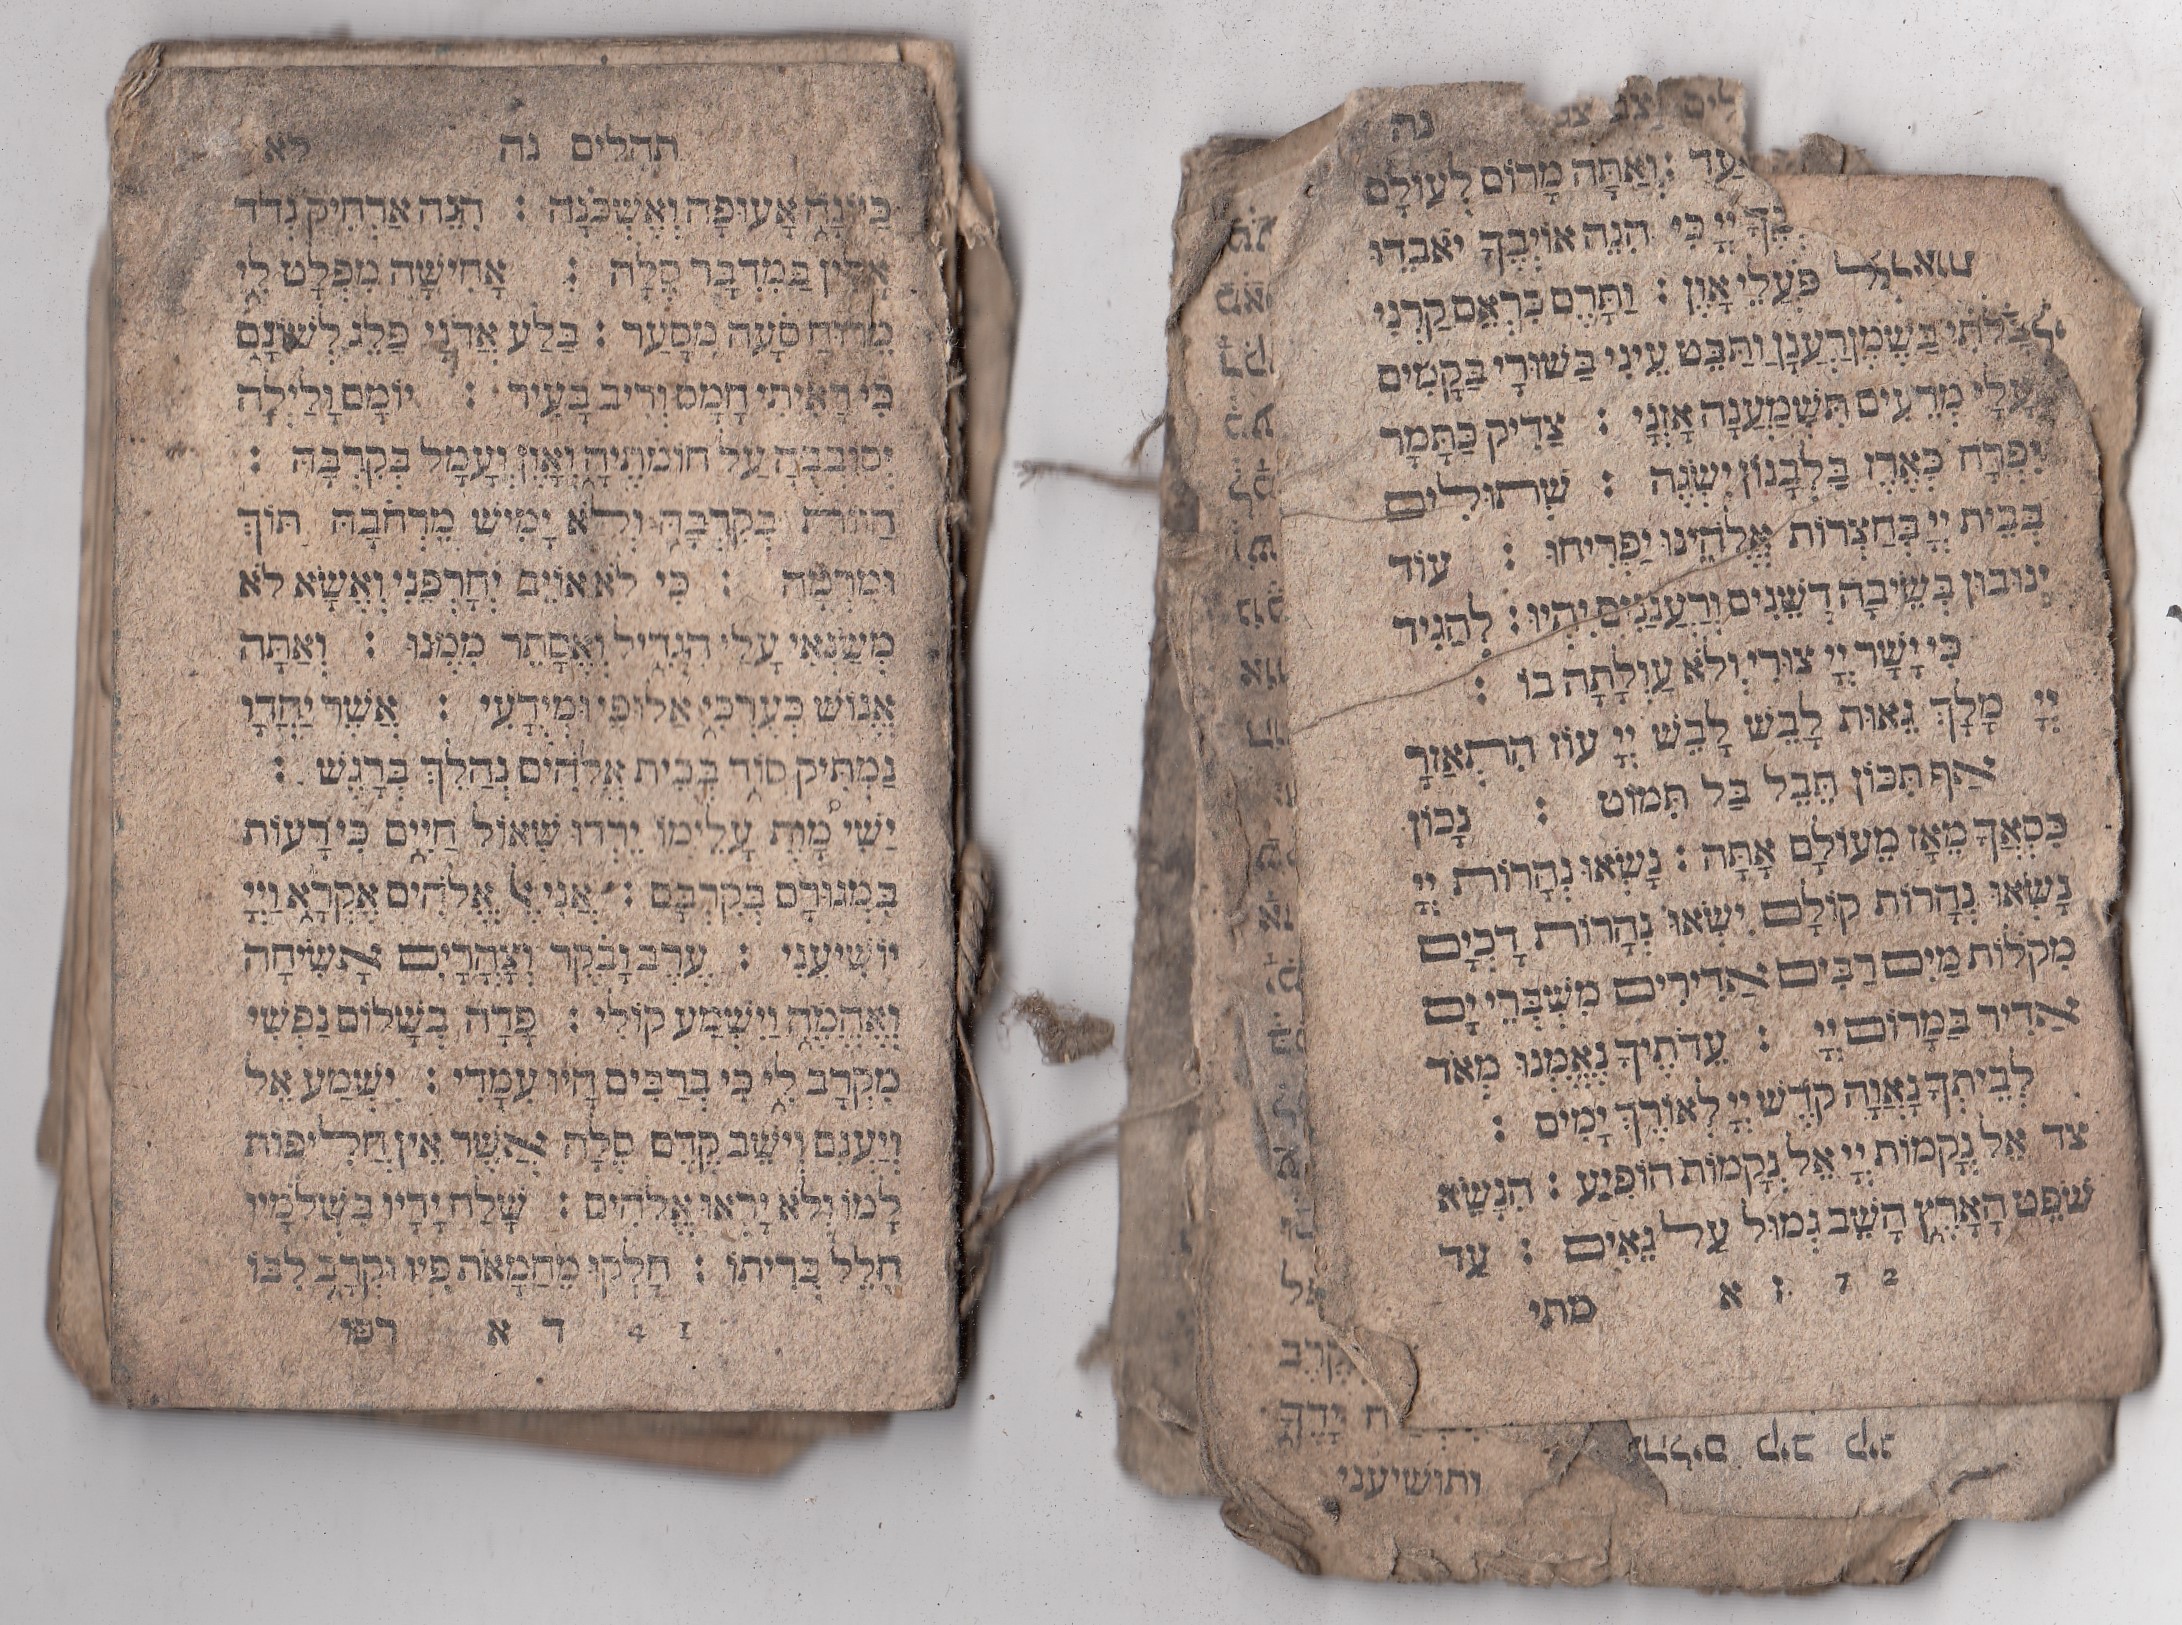 תהלים נה לא
כַּיּוֹנָה אָעוּפָה וְאֶשְׁכֹּנָה : הִנֵּה אַרְחִיק נְדֹד
אָלִין בַּמִּדְבָּר סֶלָה : אָחִישָׁה מִפְלָט לִי
מֵרוּחַ סֹעָה מִסָּעַר : בַּלַּע אֲדֹנָי פַּלַּג לְשׁוֹנָם
כִּי רָאִיתִי חָמָס וְרִיב בָּעִיר : יוֹמָם וָלַיְלָה
יְסוֹבְבֻהָ עַל חוֹמֹתֶיהָ וְאָוֶן וְעָמָל בְּקִרְבָּהּ :
הַוּוֹת בְּקִרְבָּהּ וְלֹא יָמִישׁ מֵרְחֹבָהּ תּוֹךְ
וּמִרְמָה : כִּי לֹא אוֹיֵב יְחָרְפֵנִי וְאֶשָּׂא לֹא
מְשַׂנְאִי עָלַי הִגְדִּיל וְאֶסָּתֵר מִמֶּנּוּ : וְאַתָּה
אֱנוֹשׁ כְּעֶרְכִּי אַלּוּפִי וּמְיֻדָּעִי : אֲשֶׁר יַחְדָּו
נַמְתִּיק סוֹד בְּבֵית אֱלֹהִים נְהַלֵּךְ בְּרָגֶשׁ :
יַשִּׁי מָוֶת עָלֵימוֹ יֵרְדוּ שְׁאוֹל חַיִּים כִּי רָעוֹת
בִּמְגוּרָם בְּקִרְבָּם : אֲנִי אֶל אֱלֹהִים אֶקְרָא וַיְיָ
יוֹשִׁיעֵנִי : עֶרֶב וָבֹקֶר וְצָהֳרַיִם אָשִׂיחָה
וְאֶהֱמֶה וַיִּשְׁמַע קוֹלִי : פָּדָה בְשָׁלוֹם נַפְשִׁי
מִקְּרָב לִי כִּי בְרַבִּים הָיוּ עִמָּדִי : יִשְׁמַע אֵל
וְיַעֲנֵם וְיֹשֵׁב קֶדֶם סֶלָה אֲשֶׁר אֵין חֲלִיפוֹת
לָמוֹ וְלֹא יָרְאוּ אֱלֹהִים : שָׁלַח יָדָיו בִּשְׁלֹמָיו
חִלֵּל בְּרִיתוֹ : חָלְקוּ מַחְמָאֹת פִּיו וּקְרָב לִבּוֹ
1 4 ד א רכו
צג נה
וְאַתָּה מָרוֹם לְעוֹלָם
יְיָ כִּי הִנֵּה אוֹיְבֶיךָ יֹאבֵדוּ
פֹּעֲלֵי אָוֶן : וַתָּרֶם כִּרְאֵם קַרְנִי
בַּלֹּתִי בְּשֶׁמֶן רַעֲנָן וַתַּבֵּט עֵינִי בְּשׁוּרָי בַּקָּמִים
עָלַי מְרֵעִים תִּשְׁמַעְנָה אָזְנָי : צַדִּיק כַּתָּמָר
יִפְרָח כְּאֶרֶז בַּלְּבָנוֹן יִשְׂגֶּה : שְׁתוּלִים
בְּבֵית יְיָ בְּחַצְרוֹת אֱלֹהֵינוּ יַפְרִיחוּ : עוֹד
יְנוּבוּן בְּשֵׂיבָה דְּשֵׁנִים וְרַעֲנַנִּים יִהְיוּ : לְהַגִּיד
כִּי יָשָׁר יְיָ צוּרִי וְלֹא עַוְלָתָה בּוֹ :
יְיָ מָלָךְ גֵּאוּת לָבֵשׁ לָבֵשׁ יְיָ עוֹז הִתְאַזָּר
אַף תִּכּוֹן תֵּבֵל בַּל תִּמּוֹט : נָכוֹן
כִּסְאֲךָ מֵאָז מֵעוֹלָם אָתָּה : נָשְׂאוּ נְהָרוֹת יְיָ
נָשְׂאוּ נְהָרוֹת קוֹלָם יִשְׂאוּ נְהָרוֹת דָּכְיָם
מִקֹּלוֹת מַיִם רַבִּים אַדִּירִים מִשְׁבְּרֵי יָם
אַדִּיר בַּמָּרוֹם יְיָ : עֵדֹתֶיךָ נֶאֶמְנוּ מְאֹד
לְבֵיתְךָ נָאֲוָה קֹדֶשׁ יְיָ לְאוֹרֶךְ יָמִים :
צד אֵל נְקָמוֹת יְיָ אֵל נְקָמוֹת הוֹפִיעַ : הִנָּשֵׂא
שֹׁפֵט הָאָרֶץ הָשֵׁב גְּמוּל עַל גֵּאִים : עַד
2 7 ז א מתי
יָדְךָ
ותושיעני